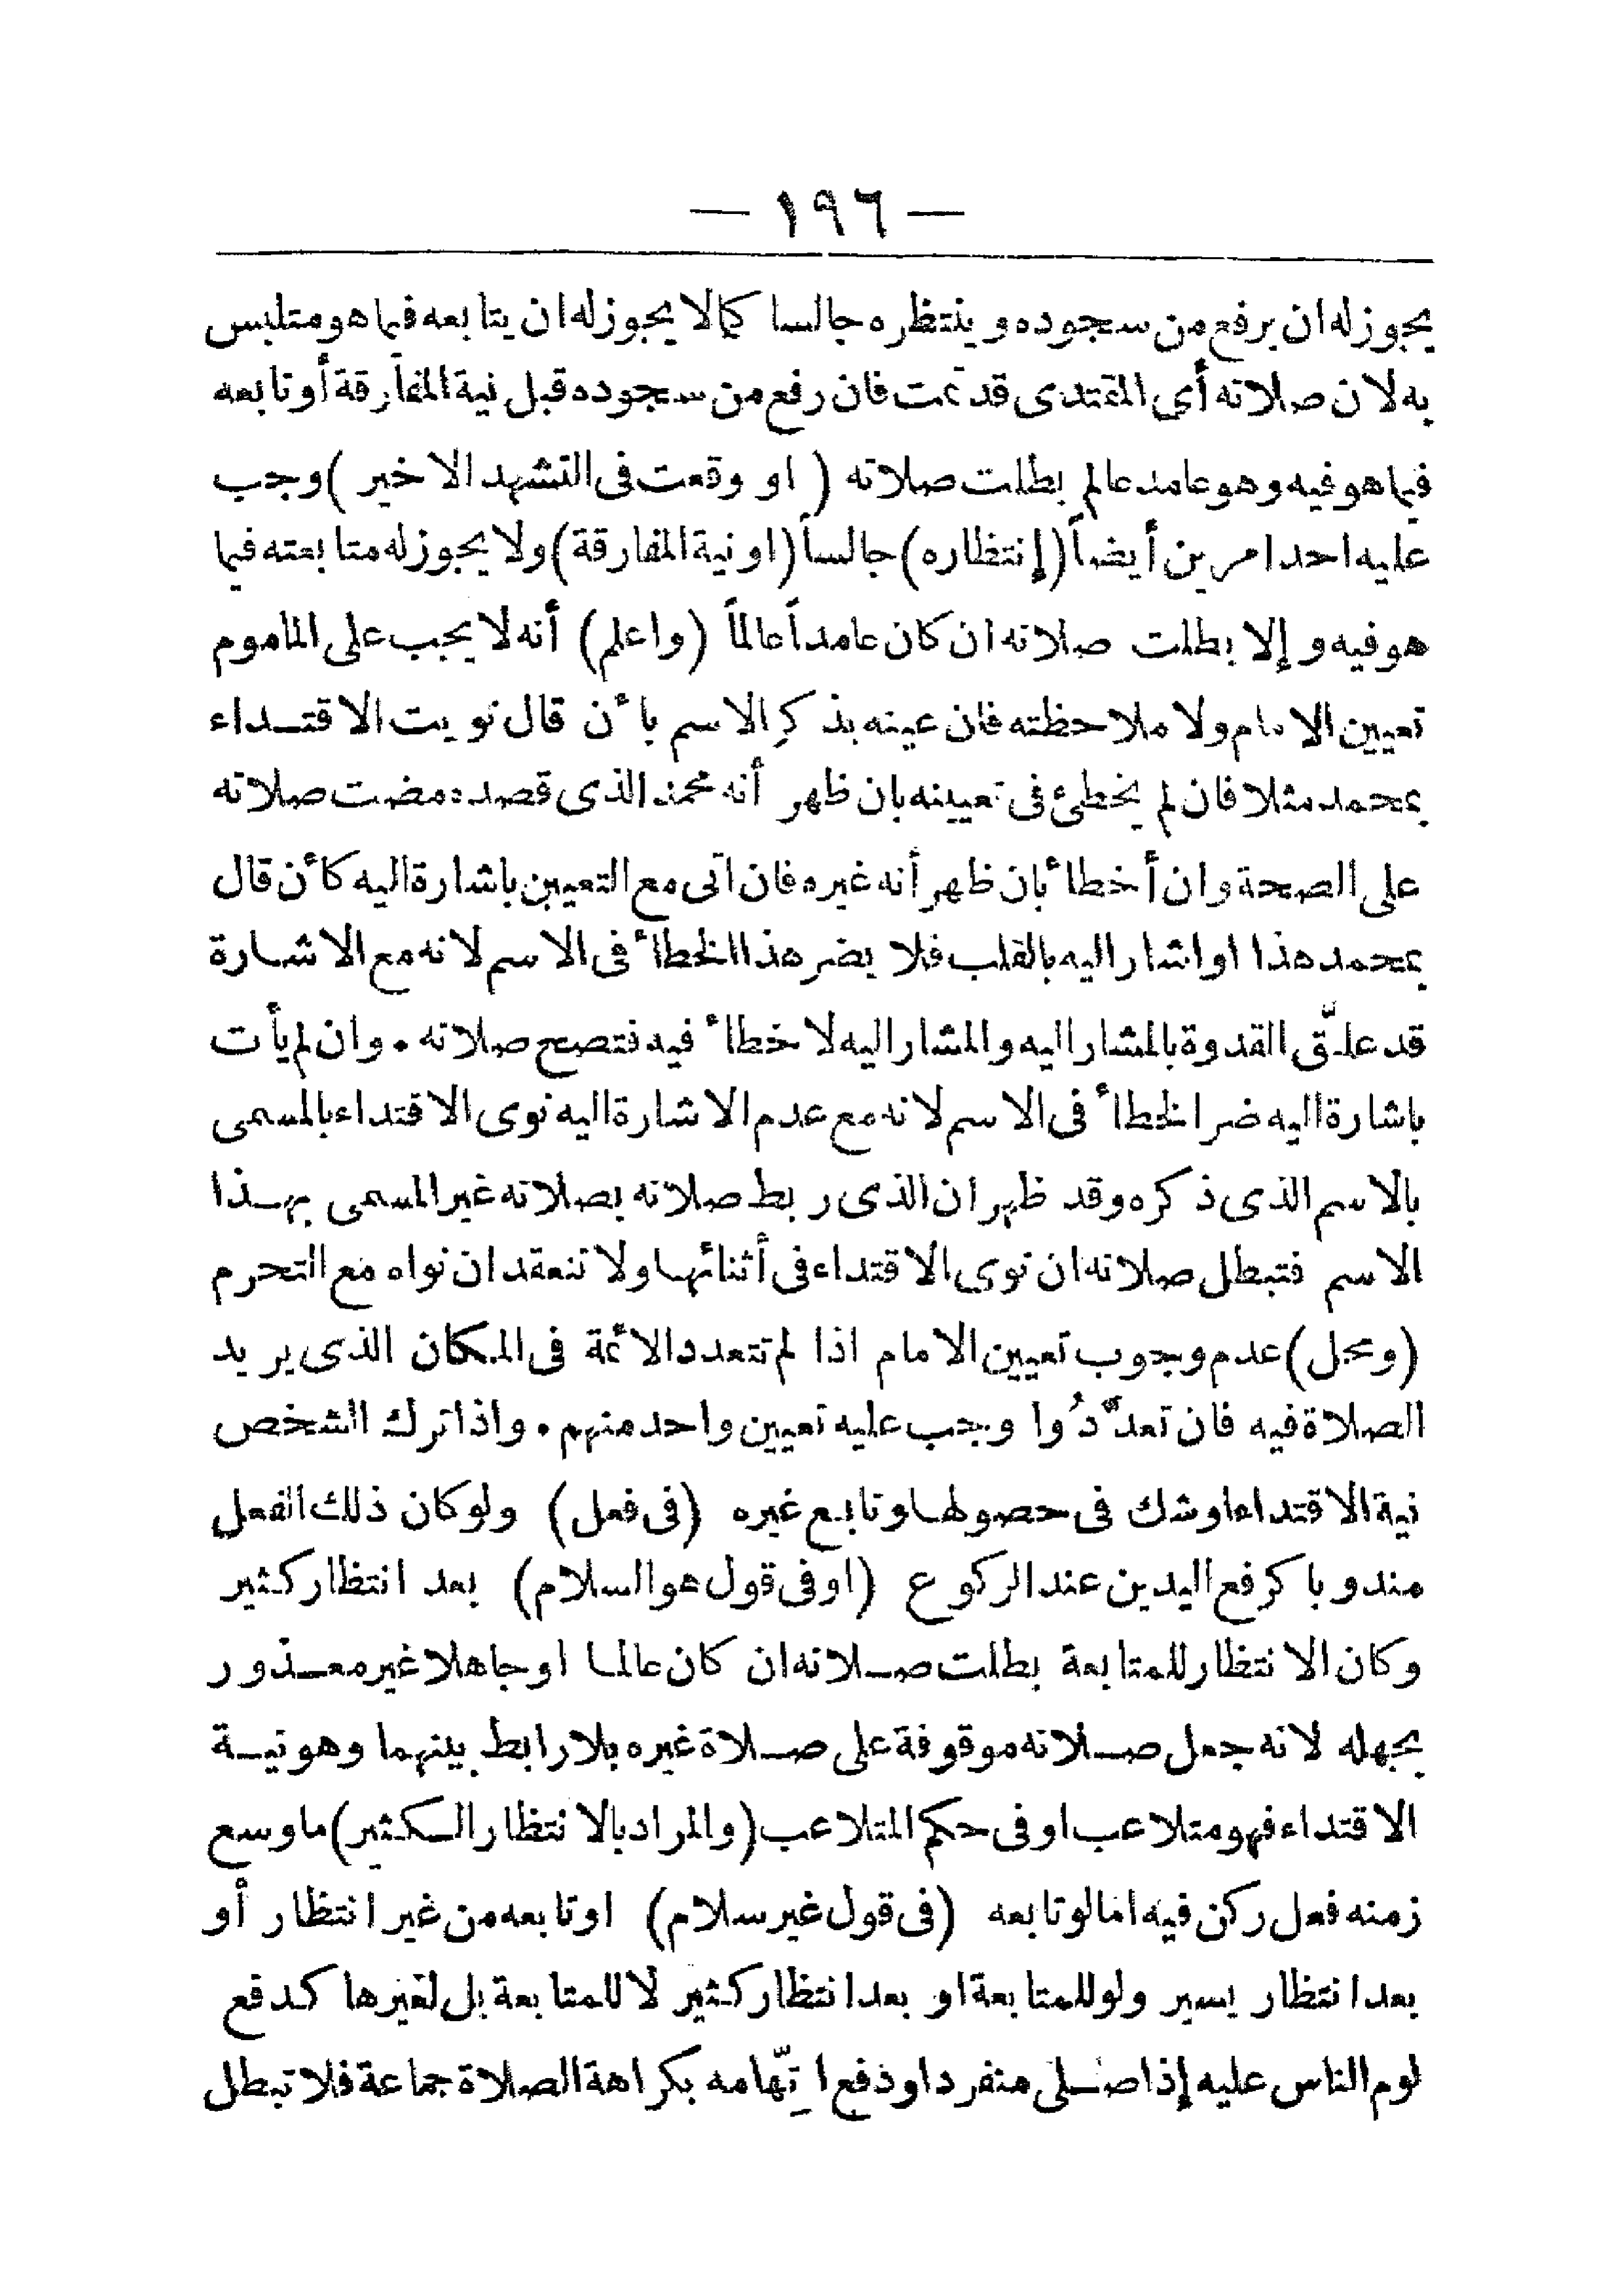 — ١٩٦ —
يجوز له ان يرفع من سجوده وينتظره جالسا كما لا يجوز له ان يتابعه فيما هو متلبس
به لان صلاته أي المقتدى قد تمت فان رفع من سجوده قبل نية المفارقة أو تابعه
فيما هو فيه وهو عامد عالم بطلت صلاته ( او وقعت فى التشهد الاخير ) وجب
عليه احد امرين أيضاً (إنتظاره) جالساً (او نية المفارقة) ولا يجوز له متابعته فيما
هو فيه وإلا بطلت صلاته ان كان عامداً عالماً (واعلم) أنه لا يجب على المأموم
تعيين الامام ولا ملاحظته فان عينه بذكرِ الاسم بأن قال نويت الاقتـداء
بمحمد مثلا فان لم يخطئ فى تعيينه بان ظهر أنه محمد الذى قصده مضت صلاته
على الصحة وان أخطأ بان ظهر أنه غيره فان أتى مع التعيين باشارة اليه كأن قال
بمحمد هذا او اشار اليه بالقلب فلا يضر هذا الخطأ فى الاسم لانه مع الاشـارة
قد علـّق القدوة بالمشار اليه والمشار اليه لا خطأ فيه فتصح صلاته . وان لم يأت
باشارة اليه ضر الخطأ فى الاسم لانه مع عدم الاشارة اليه نوى الاقتداء بالمسمى
بالاسم الذى ذكره وقد ظهر ان الذى ربط صلاته بصلاته غير المسمى بهـذا
الاسم فتبطل صلاته ان نوى الاقتداء فى أثنائهـا ولا تنعقد ان نواه مع التحرم
(ومحل) عدم وجوب تعيين الامام اذا لم تتعدد الائمة فى المكان الذى يريد
الصلاة فيه فان تعدّدُوا وجب عليه تعيين واحد منهم . واذا ترك الشخص
نية الاقتداء اوشك فى حصولهـا وتابـع غيره (فى فعل) ولو كان ذلك الفعل
مندوبا كرفع اليدين عند الركوع (او فى قول هو السلام) بعد انتظار كثير
وكان الانتظار للمتابعة بطلت صـلاته ان كان عالمـا او جاهلا غير معـذور
بجهله لانه جعل صـلاته موقوفة على صـلاة غيره بلا رابط بينهما وهو نيـة
الاقتداء فهو متلاعب او فى حكم المتلاعب (والمراد بالانتظار الـكثير) ما وسع
زمنه فعل ركن فيه اما لو تابعه (فى قول غير سلام) او تابعه من غير انتظار أو
بعد انتظار يسير ولو للمتابعة او بعد انتظار كثير لا للمتابعة بل لغيرها كدفع
لوم الناس عليه إذا صـلى منفردا ودفع اتِّهامه بكراهة الصلاة جماعة فلا تبطل